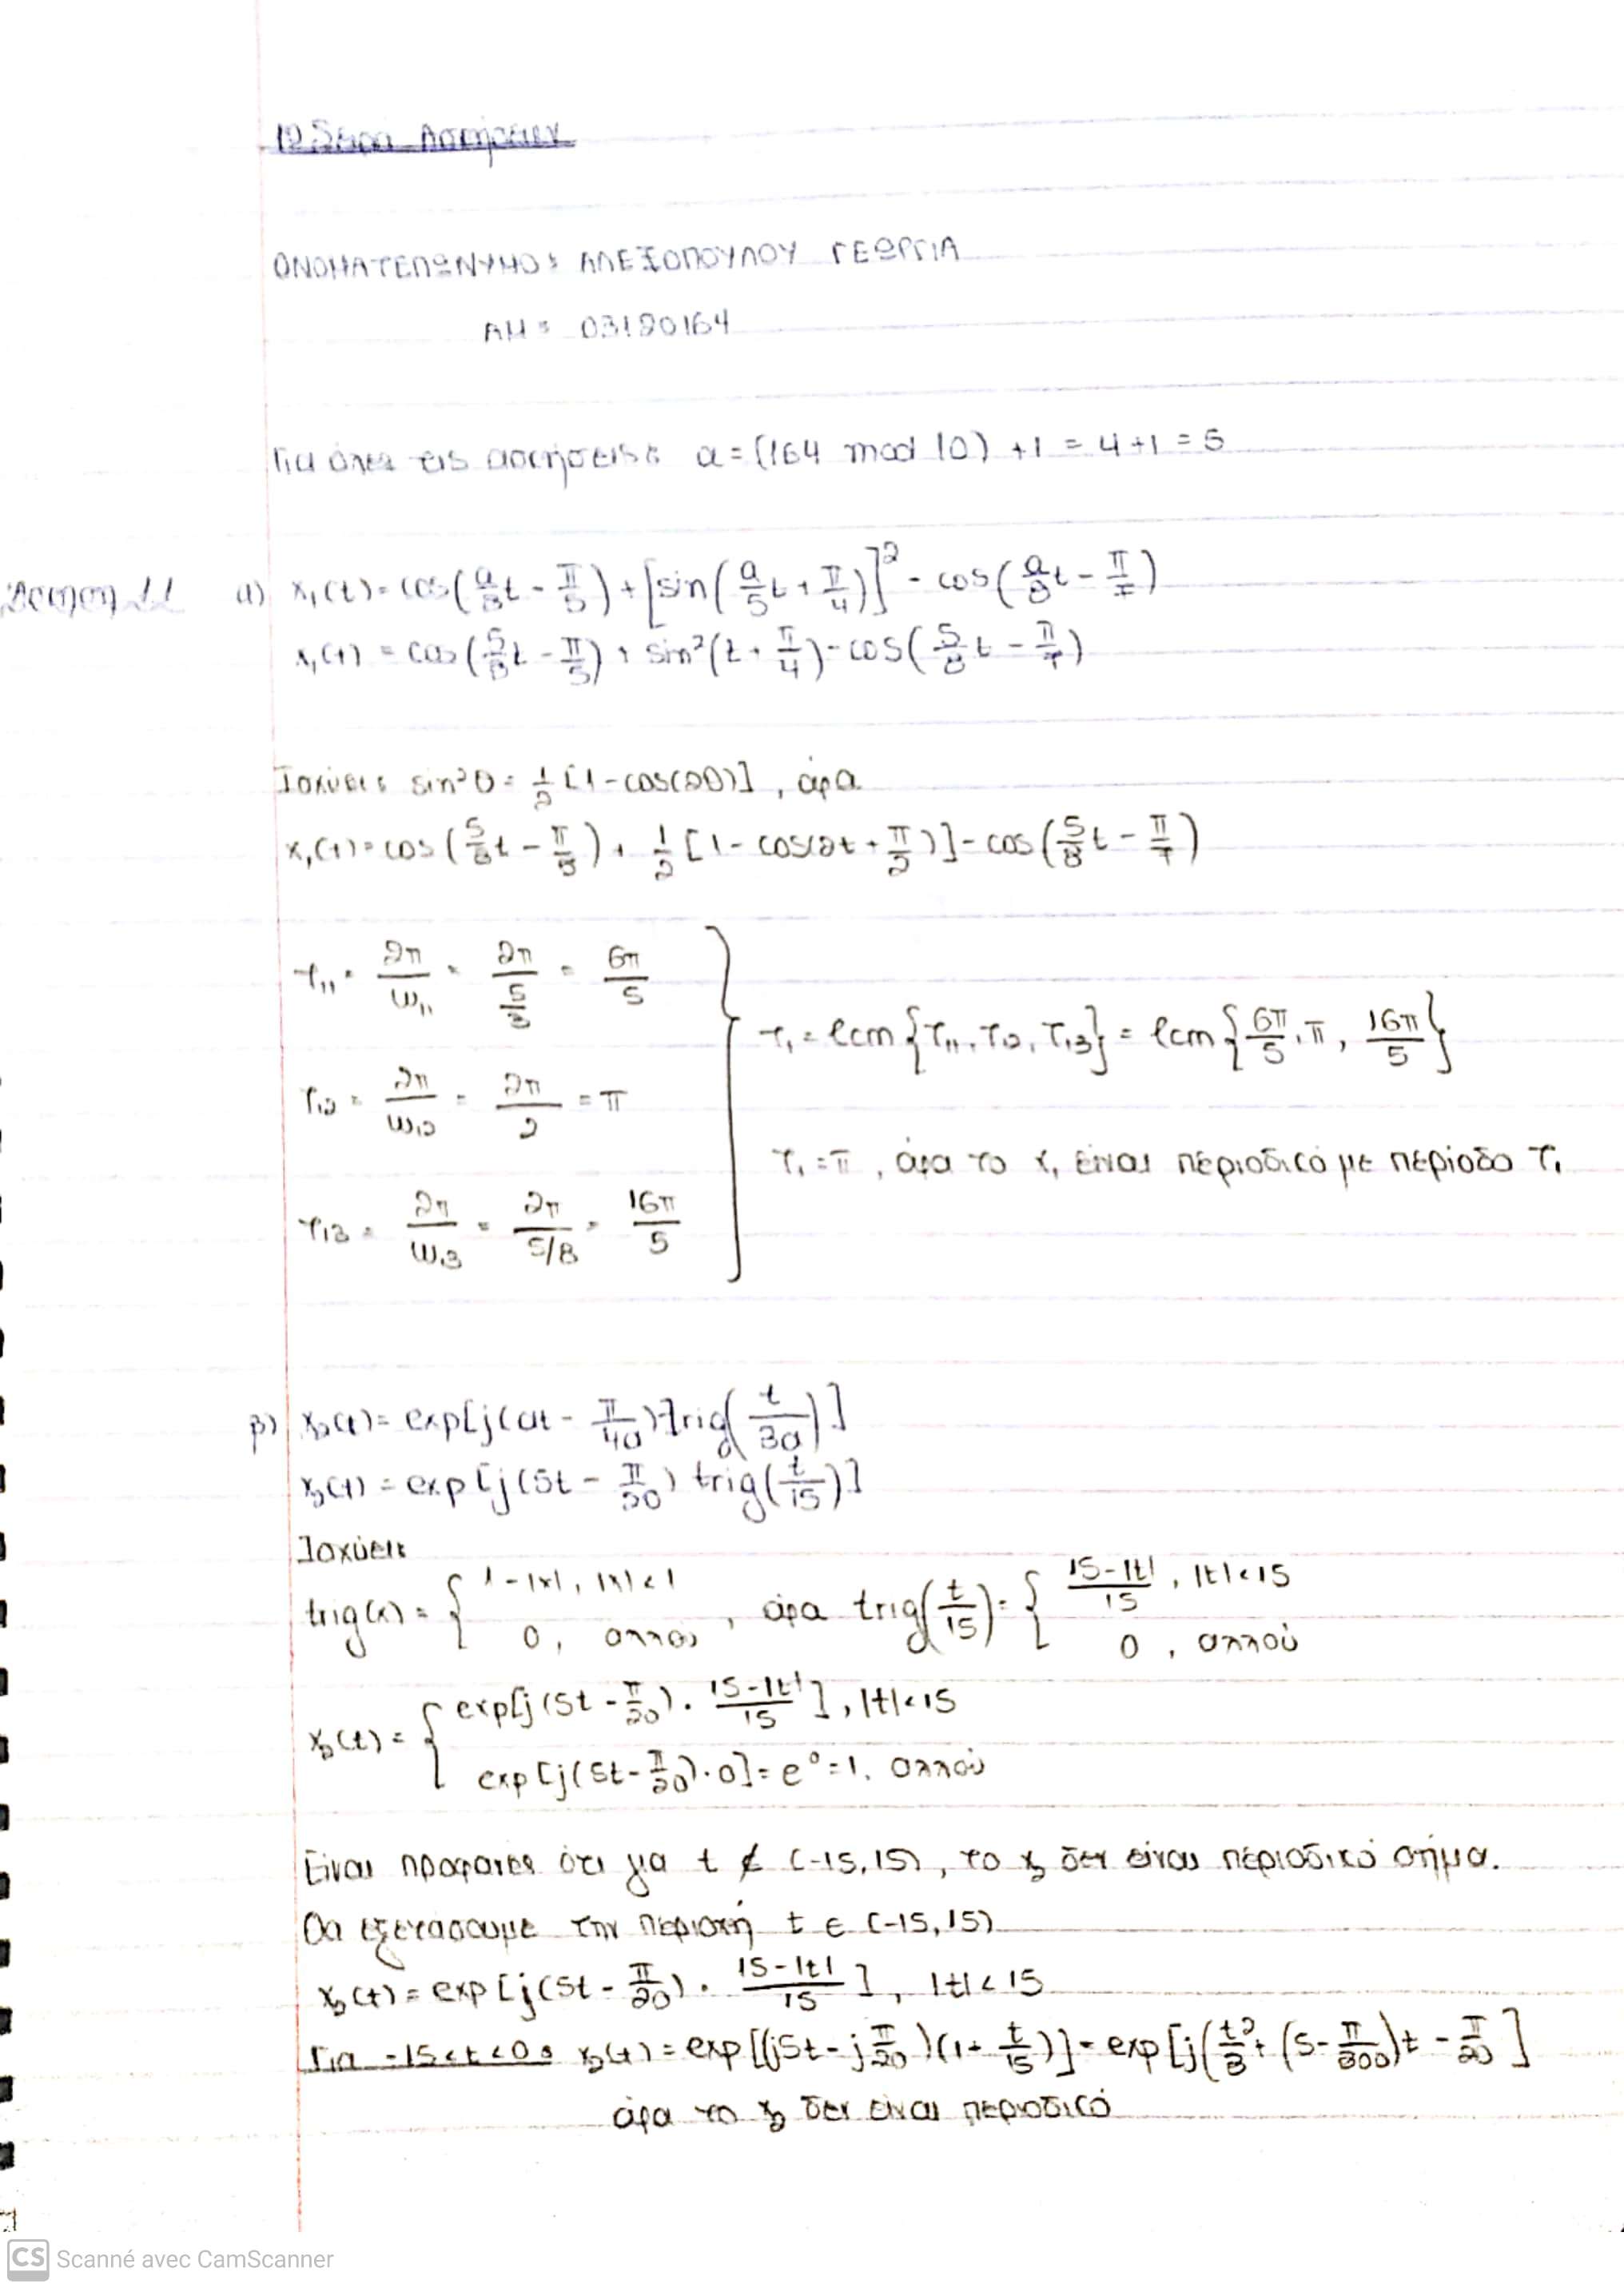 1η Σειρά Ασκήσεων
ΟΝΟΜΑΤΕΠΩΝΥΜΟ: ΑΛΕΞΟΠΟΥΛΟΥ ΓΕΩΡΓΙΑ
ΑΜ: 03120164
Για όλες τις ασκήσεις: a = (164 mod 10) +1 = 4+1 = 5
Άσκηση 1.1 α) x₁(t) = cos(a/3 t - π/5) + [sin(a/5 t + π/4)]² - cos(a/8 t - π/7)
x₁(t) = cos(5/3 t - π/5) + sin²(t + π/4) - cos(5/8 t - π/7)
Ισχύει: sin²θ = 1/2 [1-cos(2θ)], άρα
x₁(t) = cos(5/3 t - π/5) + 1/2 [1 - cos(2t + π/2)] - cos(5/8 t - π/7)
T₁₁ = 2π/ω₁₁ = 2π/(5/3) = 6π/5
T₁ = lcm {T₁₁, T₁₂, T₁₃} = lcm {6π/5, π, 16π/5}
T₁₂ = 2π/ω₁₂ = 2π/2 = π
T₁ = π, άρα το x₁ είναι περιοδικό με περίοδο T₁
T₁₃ = 2π/ω₁₃ = 2π/5/8 = 16π/5
β) x₂(t) = exp[j(at - π/4a) trig(t/3a)]
x₂(t) = exp[j(5t - π/20) trig(t/15)]
Ισχύει:
trig(x) = { 1-|x|, |x|<1 0, αλλού , άρα trig(t/15) = { 15-|t|/15, |t|<15 0, αλλού
x₂(t) = { exp[j(5t - π/20) · 15-|t|/15], |t|<15
exp[j(5t - π/20)·0] = e⁰ = 1, αλλού
Είναι προφανές ότι για t ∉ (-15,15), το x₂ δεν είναι περιοδικό σήμα.
Θα εξετάσουμε την περιοχή t ∈ (-15,15)
x₂(t) = exp[j(5t - π/20) · 15-|t|/15], |t|<15
Για -15<t<0: x₂(t) = exp[(j5t - jπ/20)(1 + t/15)] = exp[j(t²/3 + (5 - π/300)t - π/20]
άρα το x₂ δεν είναι περιοδικό
CS Scanné avec CamScanner